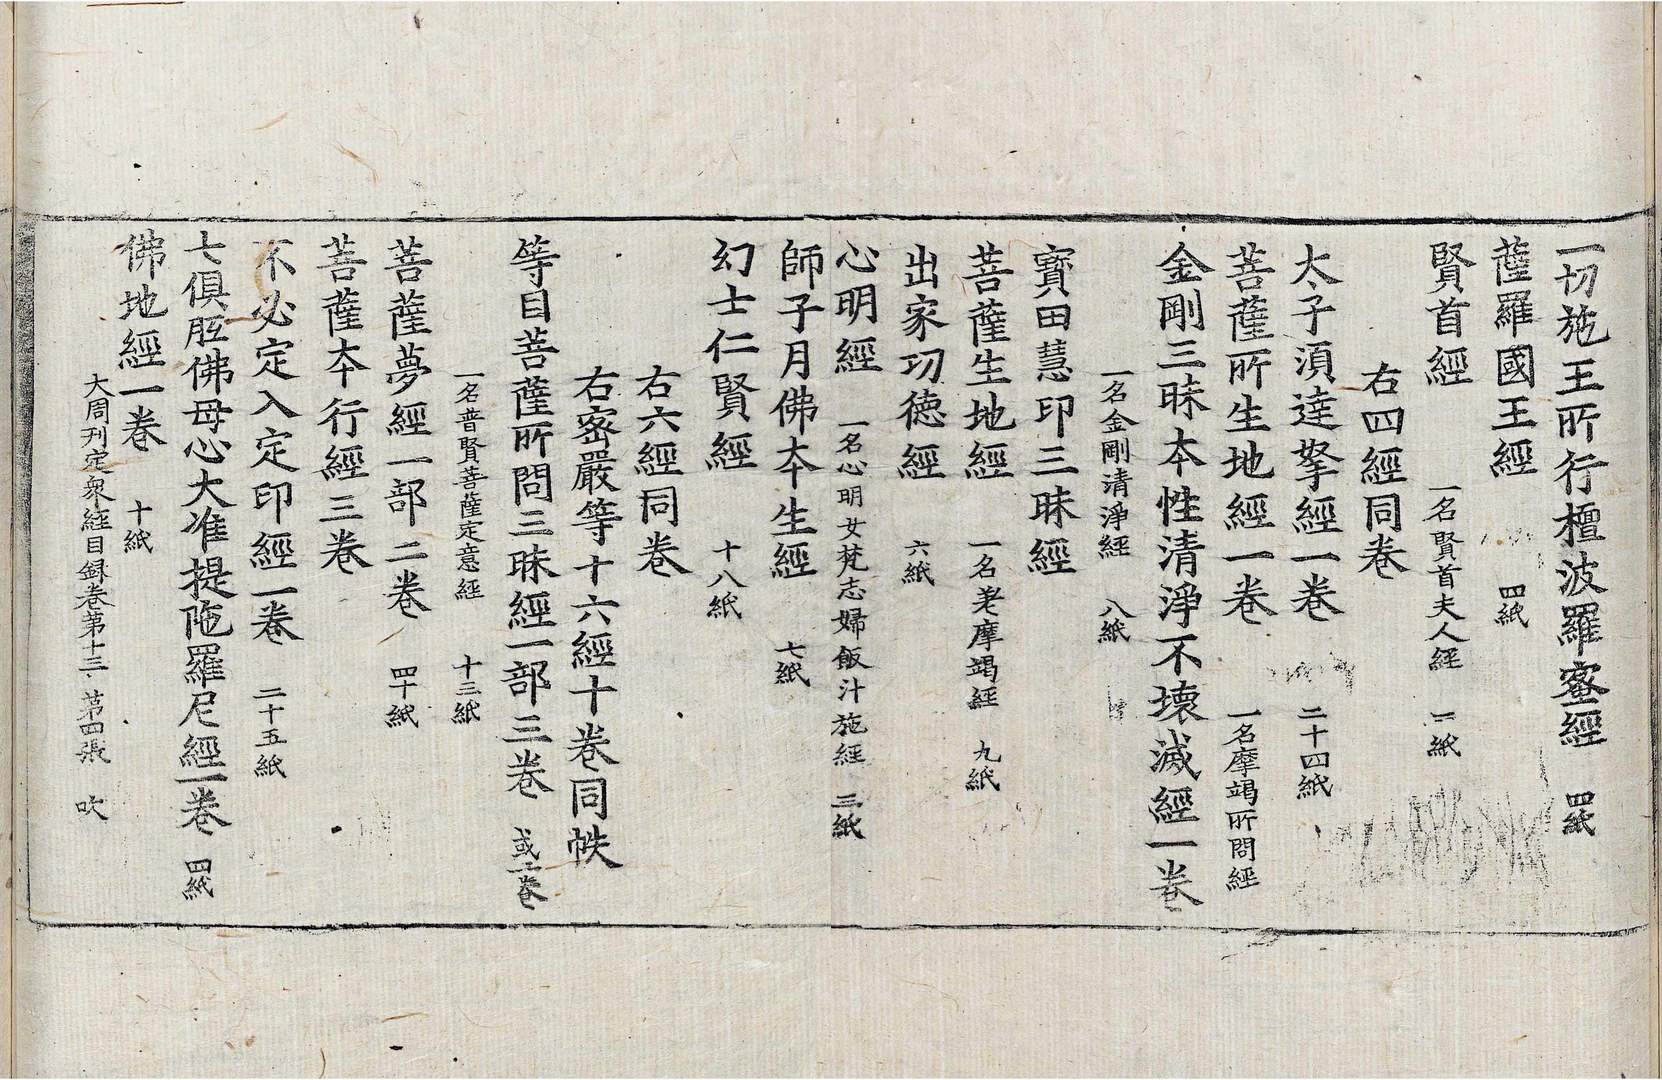 一切施王所行檀波羅蜜經 四紙
薩羅國王經 四紙
賢首經 一名賢首夫人經 二紙
右四經同卷
太子須達拏經一卷 二十四紙
菩薩所生地經一卷 一名摩竭所問經
金剛三昧本性清淨不壞滅經一卷
一名金剛清淨經 八紙
寶田慧印三昧經
菩薩生地經 一名差摩竭經 九紙
出家功德經 六紙
心明經 一名心明女梵志婦飯汁施經 三紙
師子月佛本生經 七紙
幻士仁賢經 十八紙
右六經同卷
右密嚴等十六經十卷同帙
等目菩薩所問三昧經一部三卷 或二卷
一名普賢菩薩定意經 十三紙
菩薩夢經一部二卷 四十紙
菩薩本行經三卷
不必定入定印經一卷 二十五紙
七俱胝佛母心大准提陁羅尼經一卷 四紙
佛地經一卷 十紙
大周刊定衆經目録卷第十三 第四張 吹